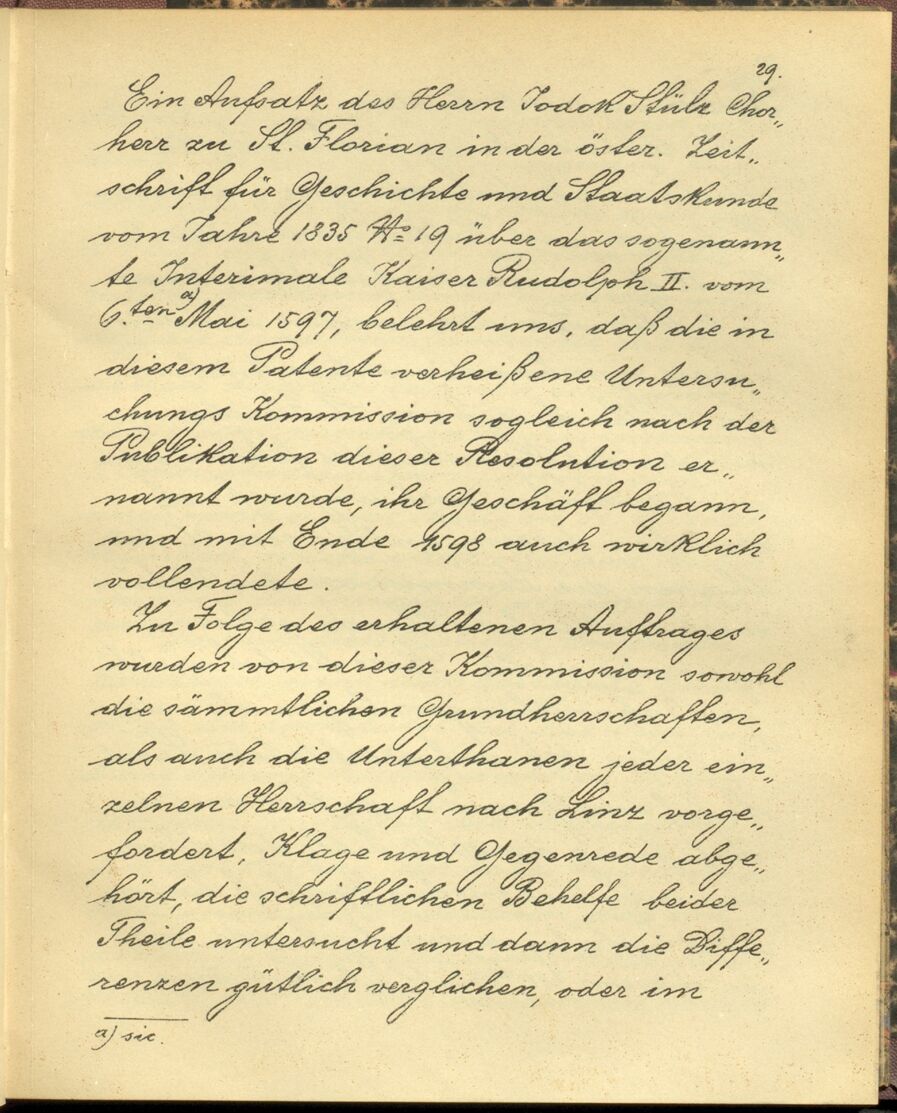 29.
Ein Aufsatz des Herrn Jodok Stülz Chor„
herr zu St. Florian in der öster. Zeit„
schrift für Geschichte und Staatskunde
vom Jahre 1835 No 19 über das sogenann„
te Interimale Kaiser Rudolph II. vom
6.ten a) Mai 1597, belehrt uns, daß die in
diesem Patente verheißene Untersu„
chungs Kommission sogleich nach der
Publikation dieser Resolution er„
nannt wurde, ihr Geschäft begann,
und mit Ende 1598 auch wirklich
vollendete.
Zu Folge des erhaltenen Auftrages
wurden von dieser Kommission sowohl
die sämmtlichen Grundherrschaften,
als auch die Unterthanen jeder ein„
zelnen Herrschaft nach Linz vorge„
fordert, Klage und Gegenrede abge„
hört, die schriftlichen Behelfe beider
Theile untersucht und dann die Diffe„
renzen gütlich verglichen, oder im
a) sic.